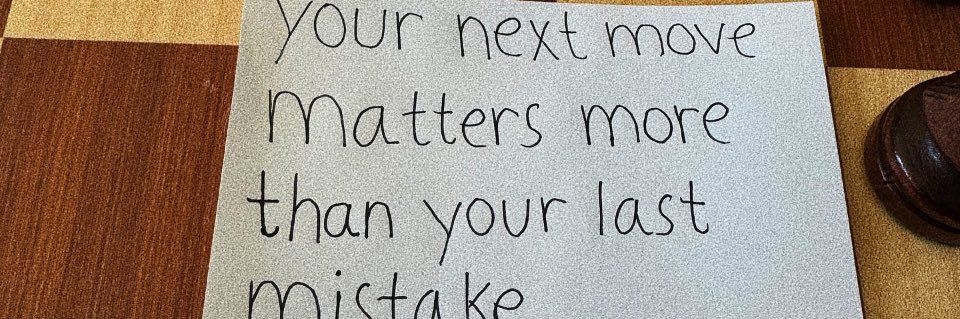 your next move
matters more
than your last
mistake